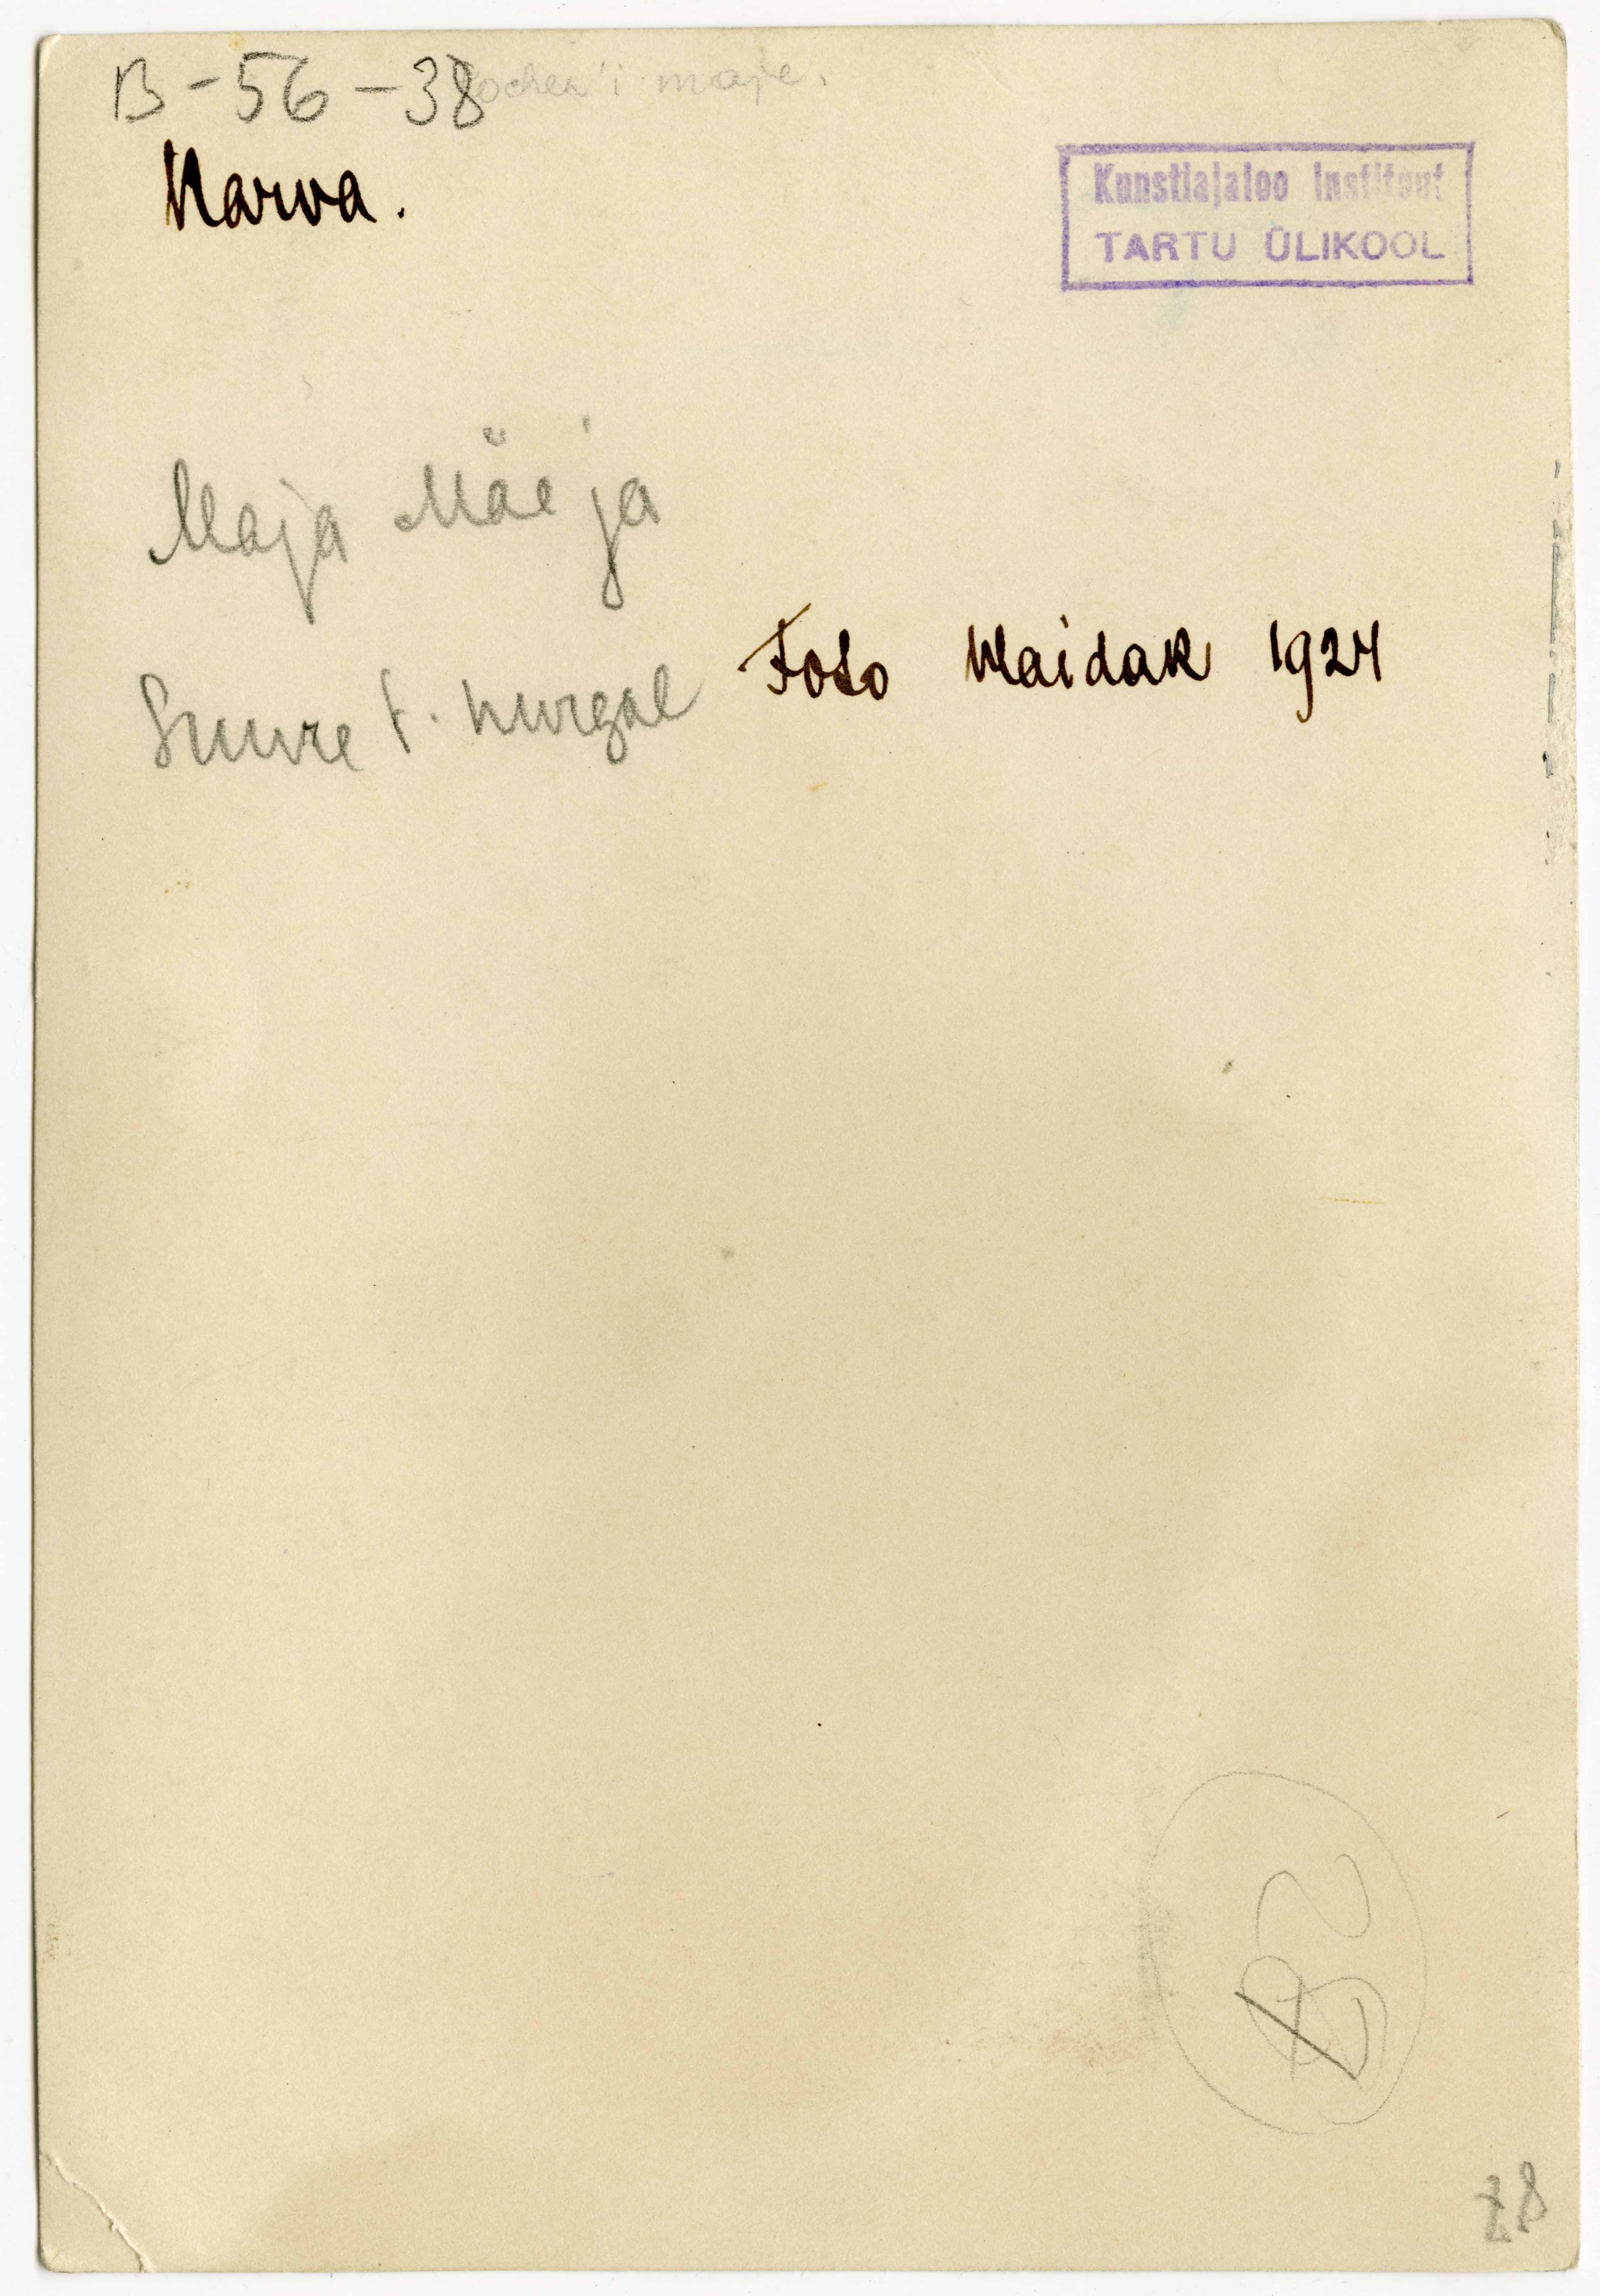 B-56-38
maja.
Narva.
Kunstiajaloo Instituut
TARTU ÜLIKOOL
Maja Mäe ja
Suure t. nurgal
Foto Maidak 1924
28